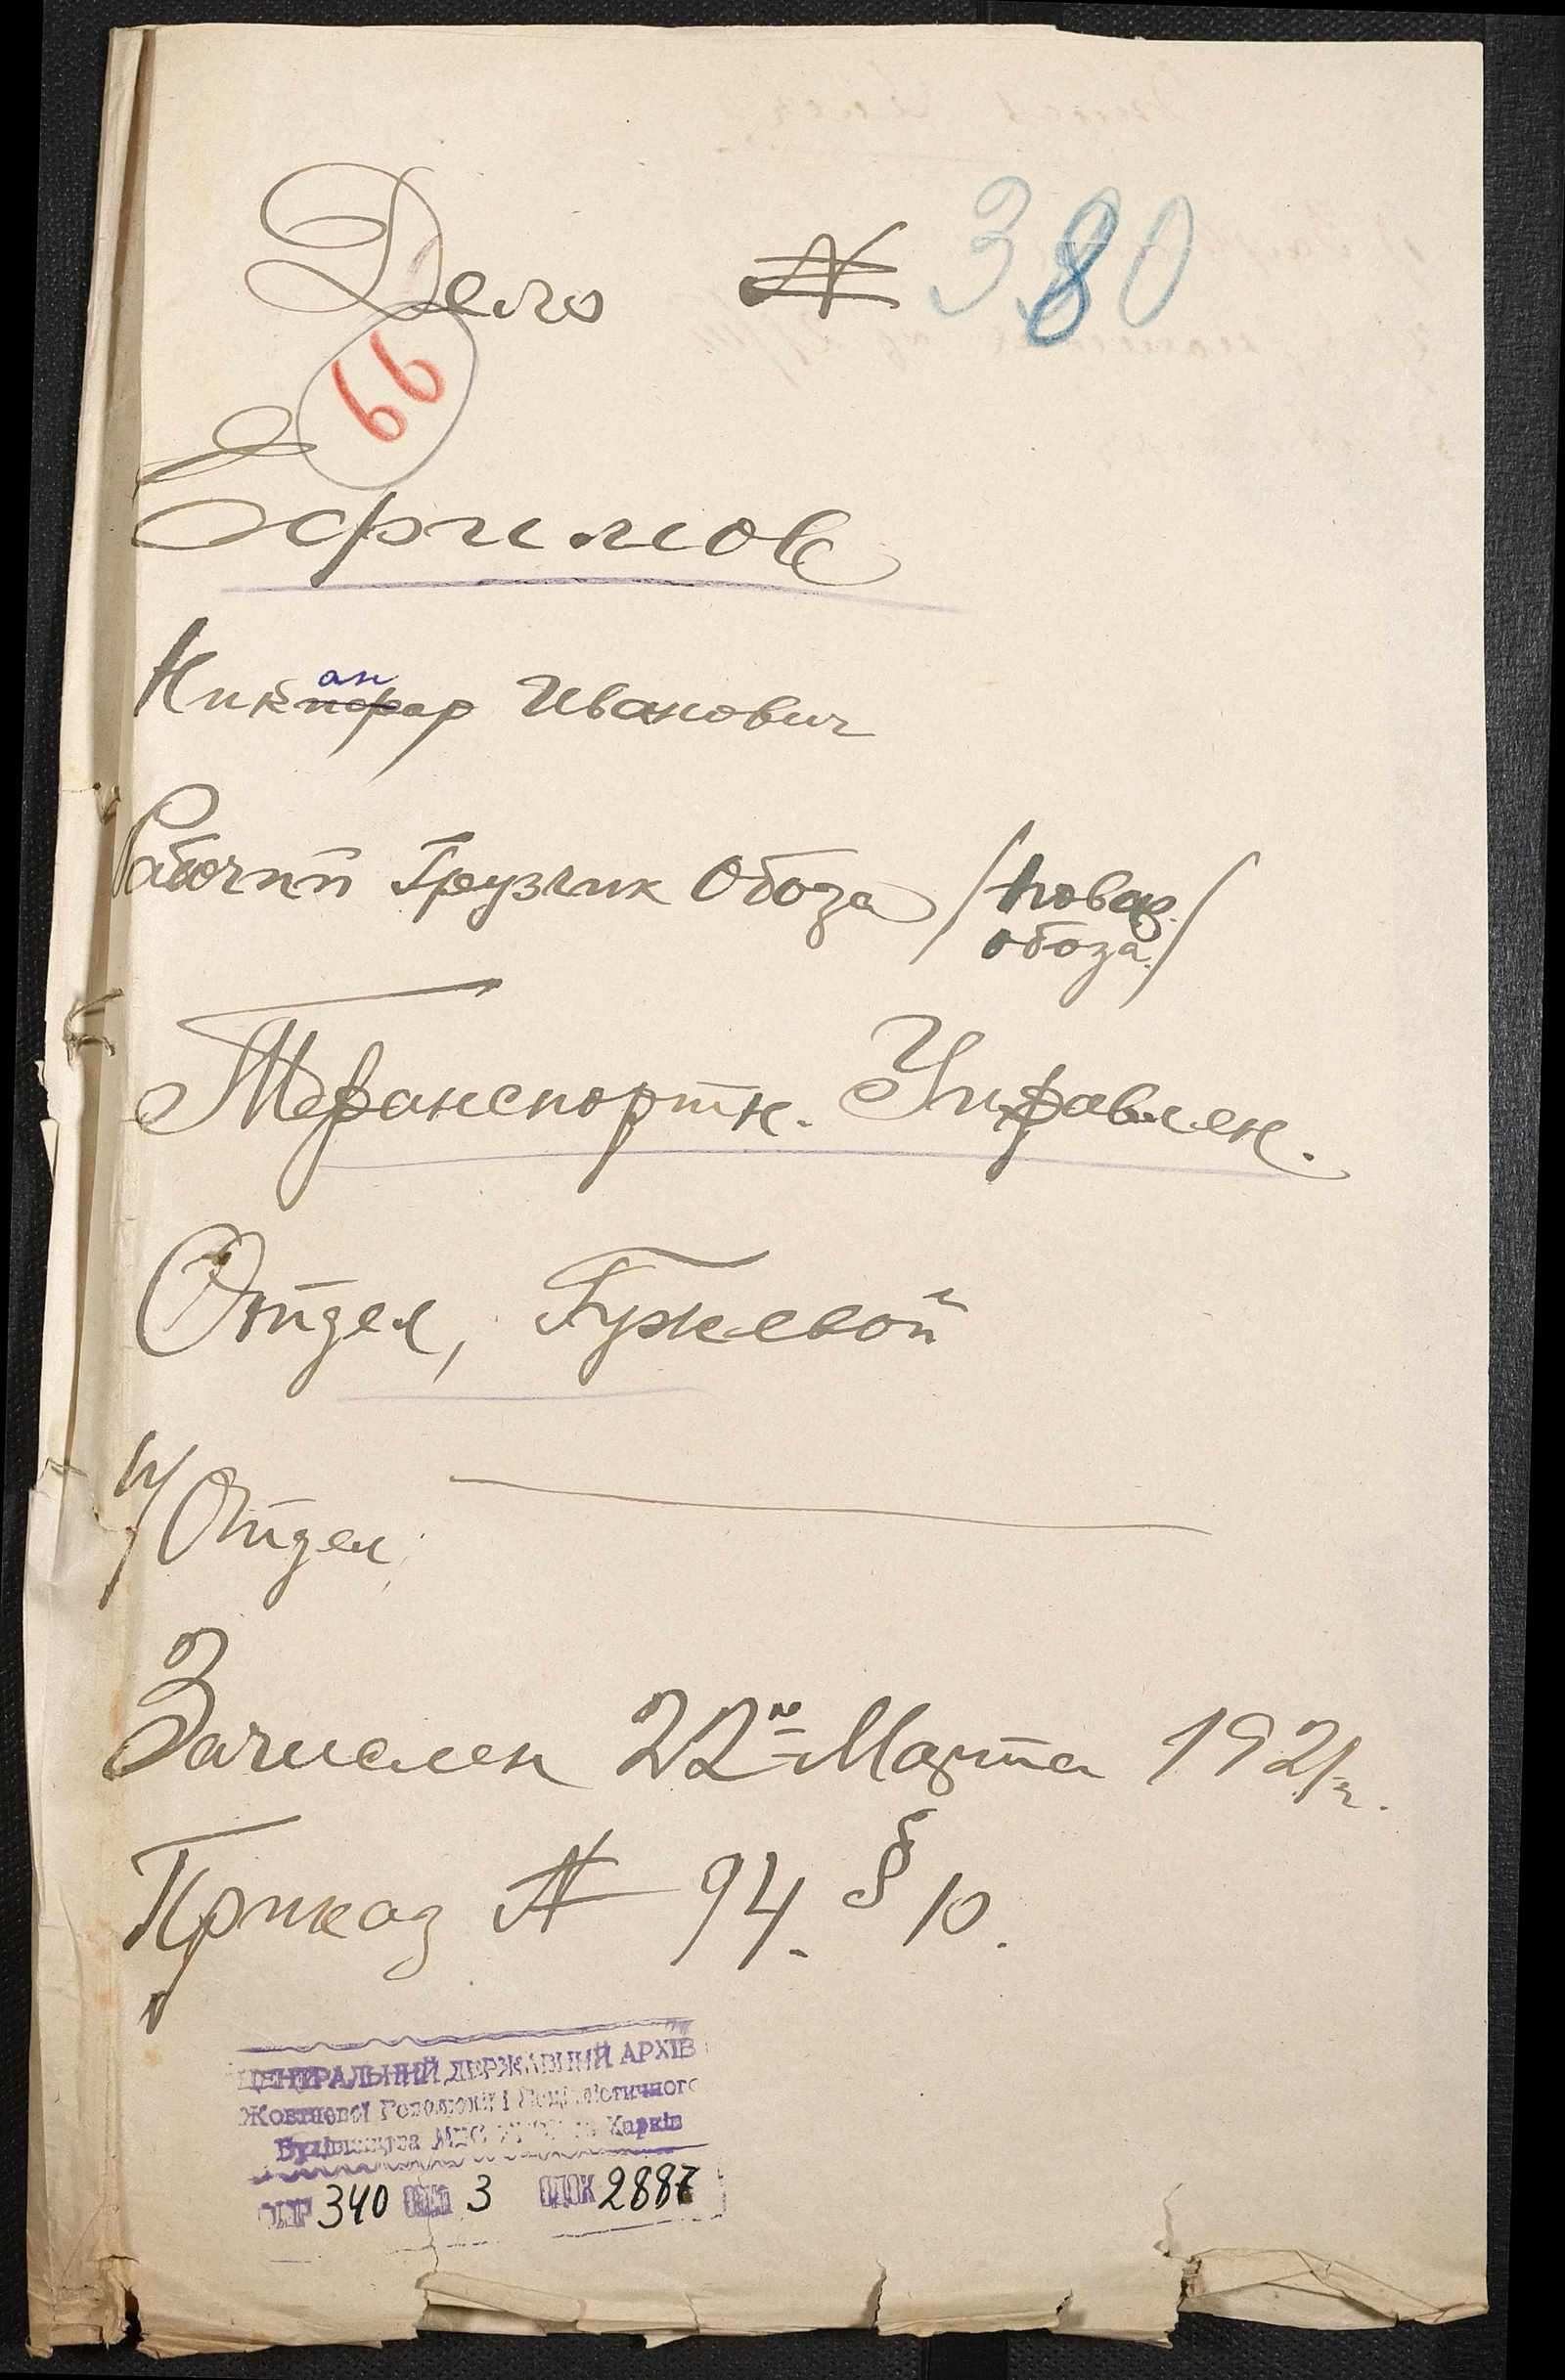 Дело № 380
66
Ефимов
Никанор Иванович
Рабочий Грузчик Обоза /Конвоя.
обоза./
Транспортн. Управлен.
Отдел, Гужевой
п/Отдел,
Зачислен 22го Марта 1921г.
Приказ № 94. § 10.
ЦЕНТРАЛЬНИЙ ДЕРЖАВНИЙ АРХІВ
Жовтневої Революції і Соціалістичного
Будівництва МВС УРСР м. Харків
340 3 2887